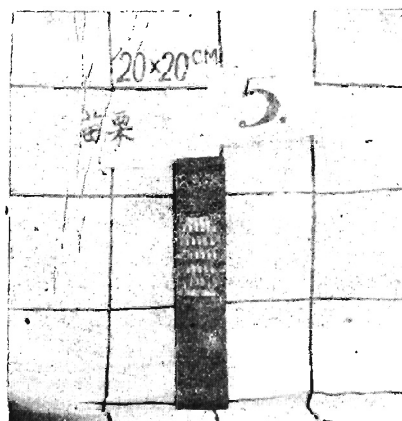 20×20CM
5.
苗栗